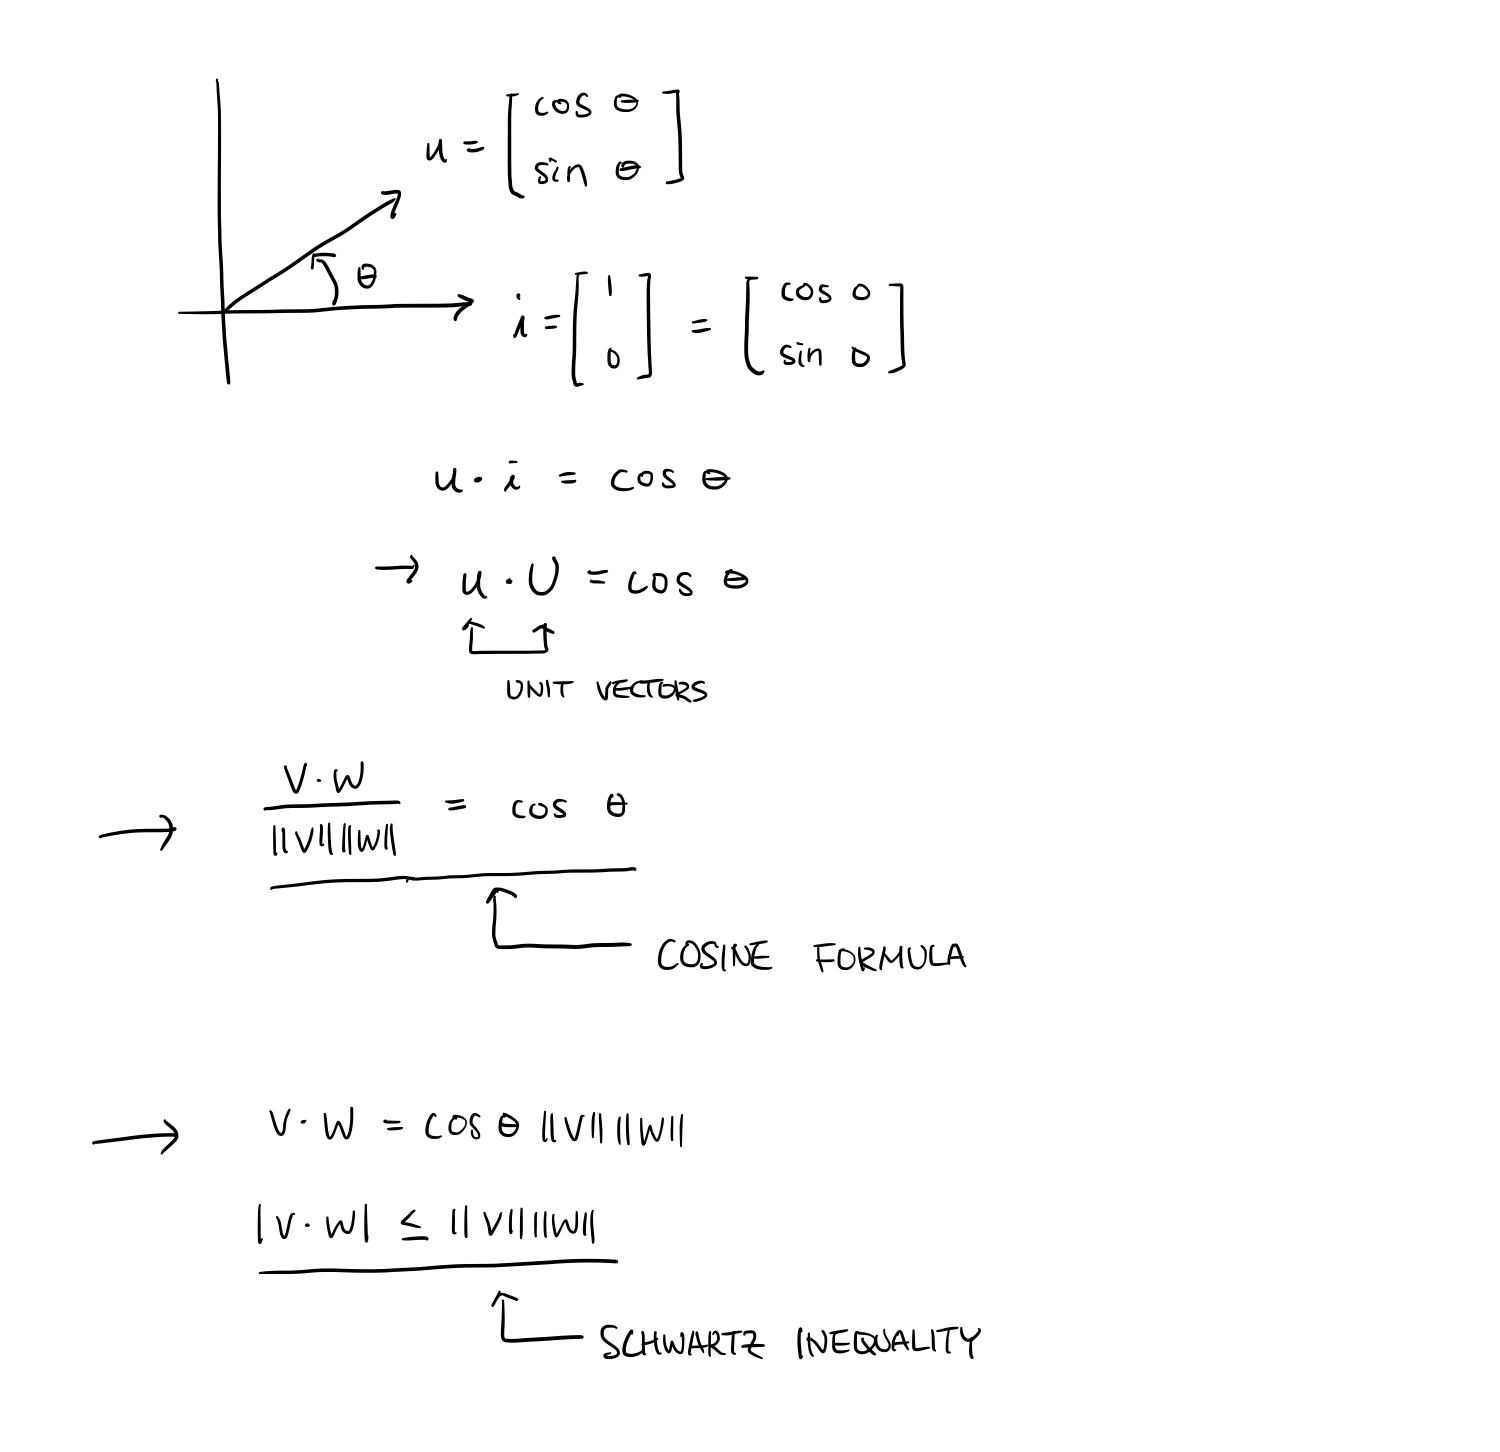 u = [ cos θ
sin θ ]
θ
i = [ 1
0 ] = [ cos 0
sin 0 ]
u · i = cos θ
→ u · U = cos θ
UNIT VECTORS
→ V · W / ||V|| ||W|| = cos θ
COSINE FORMULA
→ V · W = cos θ ||V|| ||W||
|V · W| ≤ ||V|| ||W||
SCHWARTZ INEQUALITY